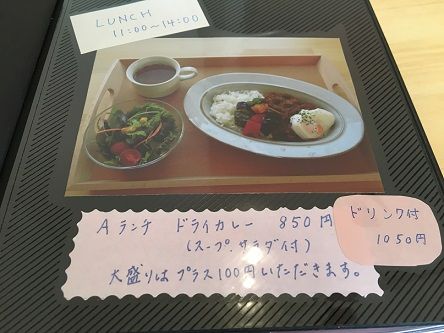 LUNCH
11:00〜14:00
Aランチ ドライカレー 850円
(スープ、サラダ付)
大盛りはプラス100円いただきます。
ドリンク付
1050円